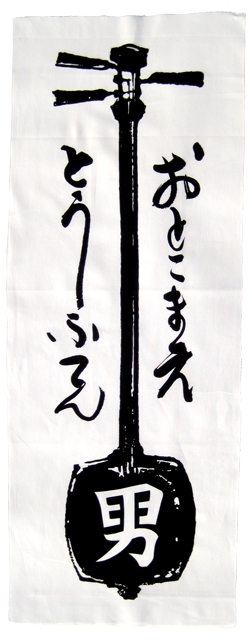 おとこまえ
とうふてん
男